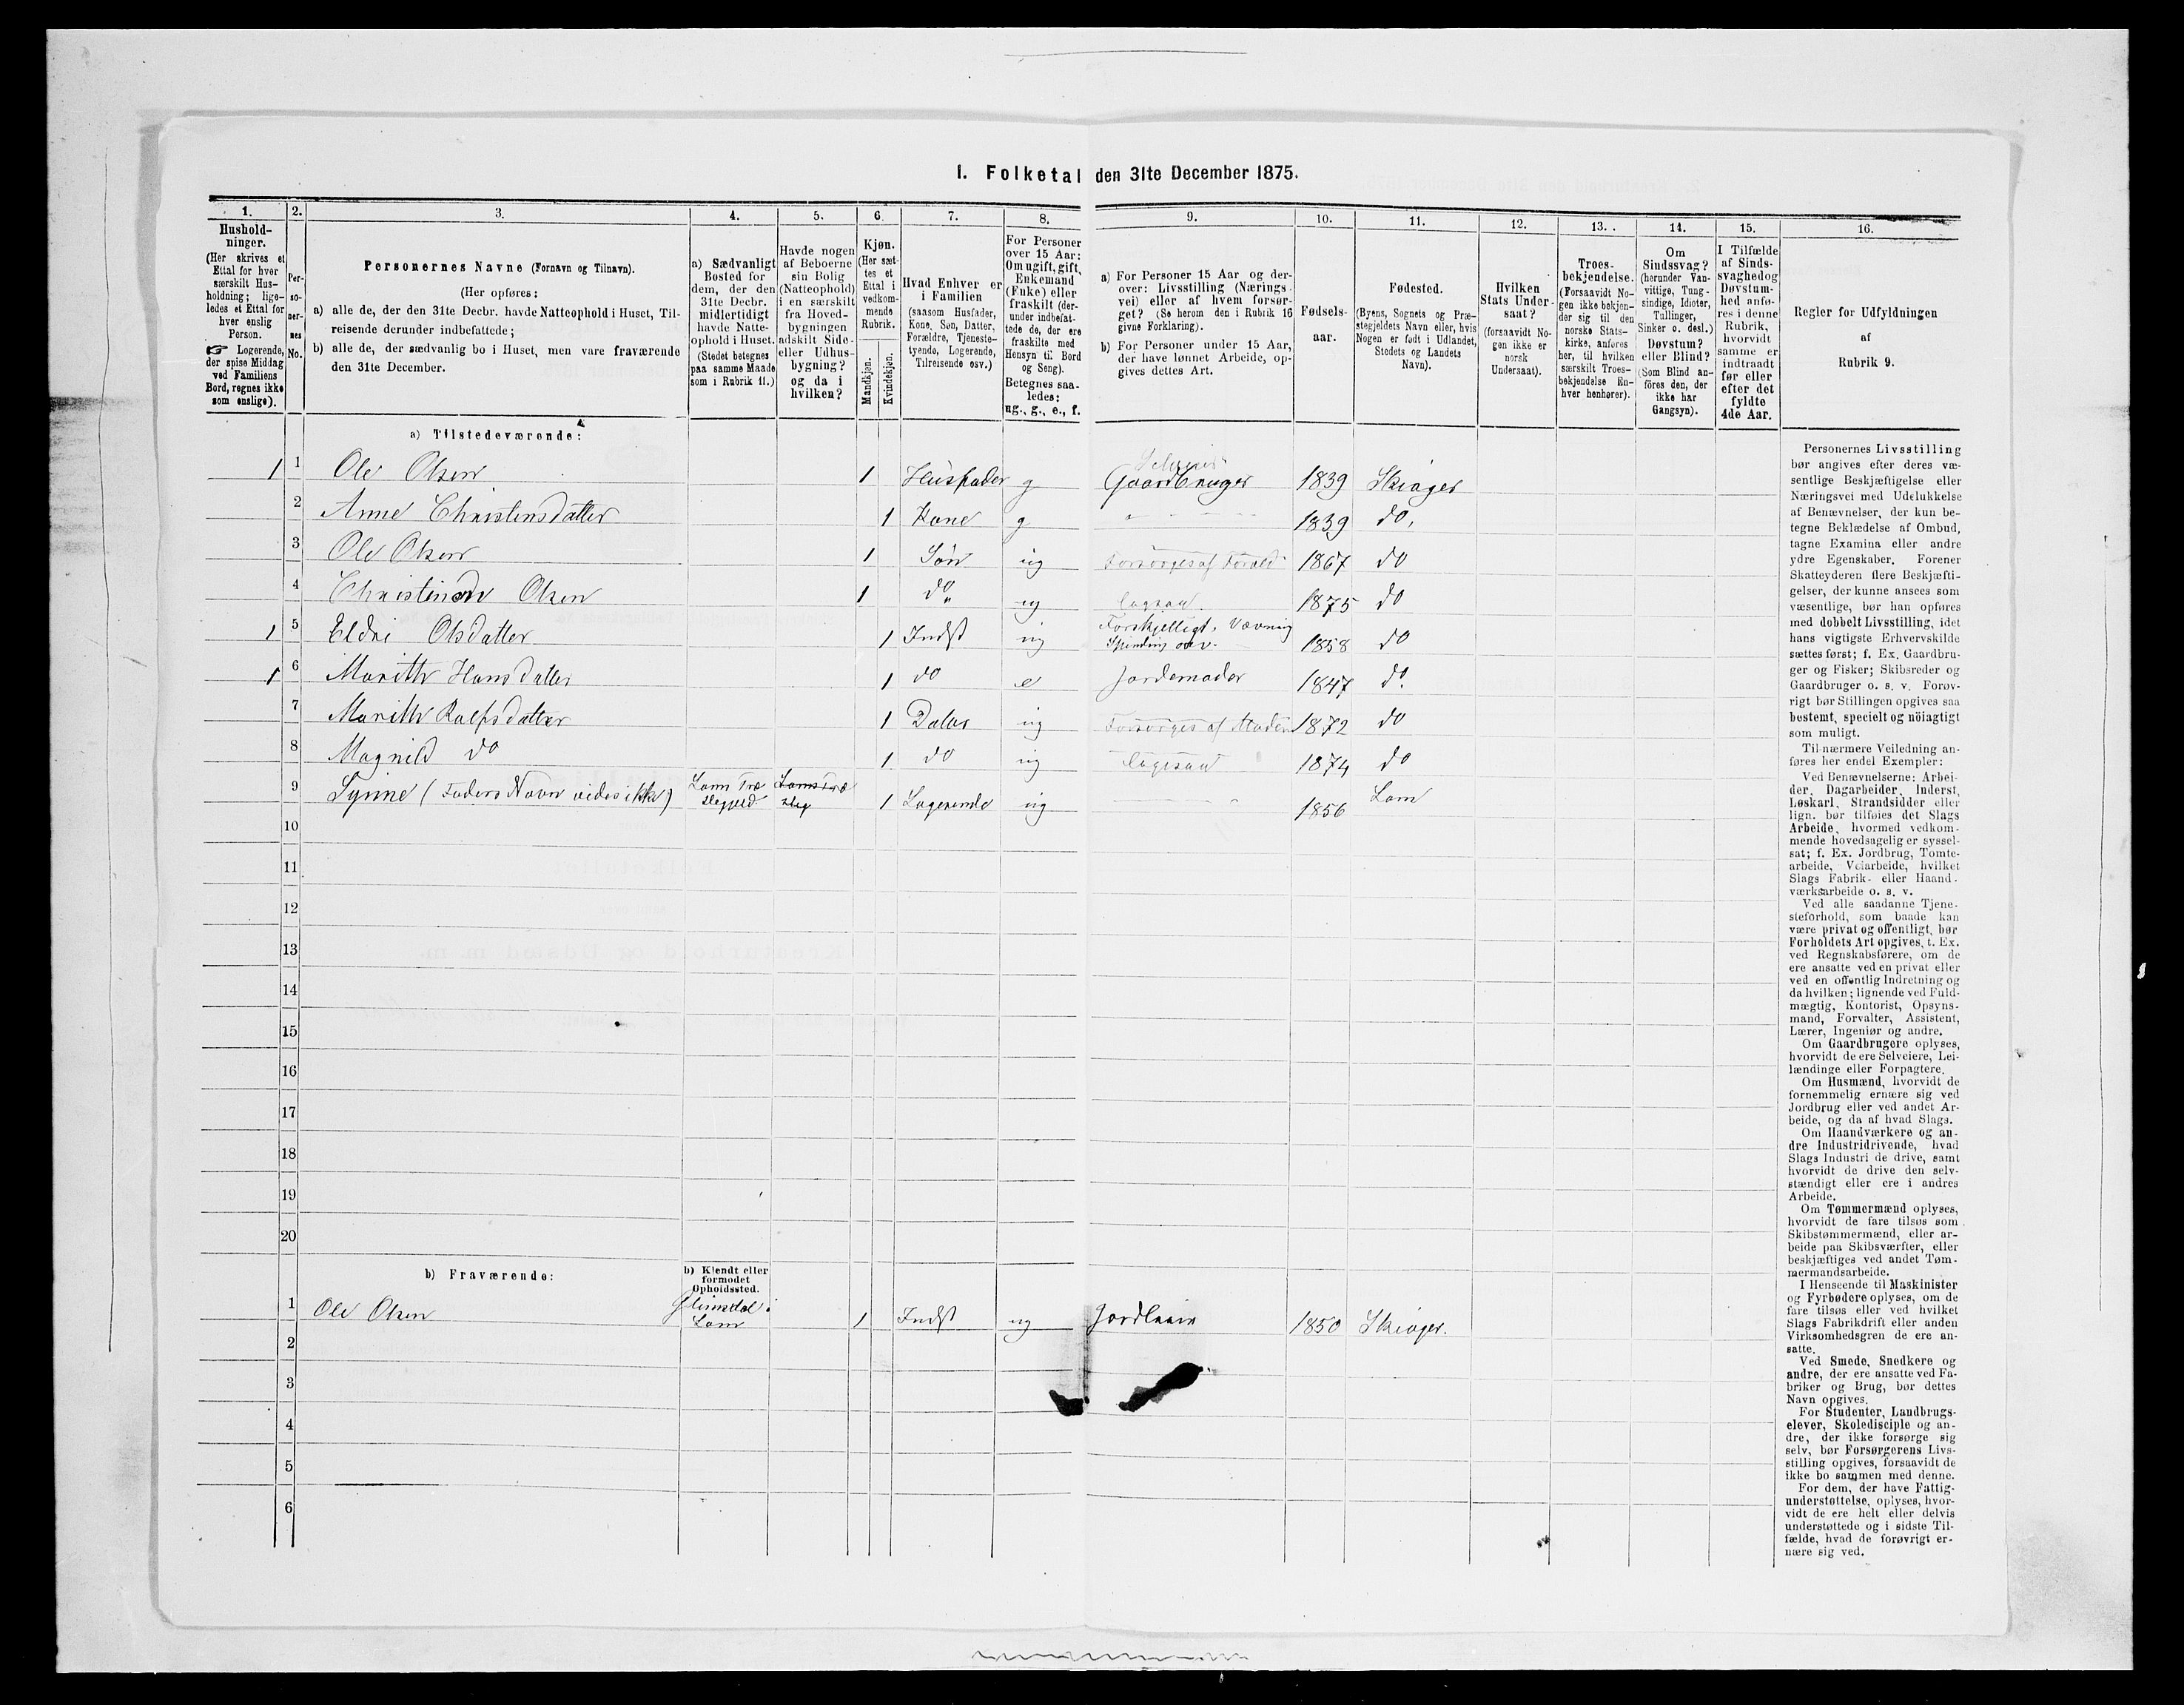 I. Folketal den 31te December 1875.
1.
2.
3.
4.
5.
6.
7.
8.
9.
10.
11.
12.
13.
14.
15.
16.
Hushold-
ninger.
(Her skrives et
Ettal for hver
særskilt Hus-
holdning; lige-
ledes et Ettal for
hver enslig
Person.
☞ Logerende,
der spise Middag
ved Familiens
Bord, regnes ikke
som enslige).
Per-
so-
ner-
nes
No.
Personernes Navne (Fornavn og Tilnavn).
(Her opføres:
a) alle de, der den 31te Decbr. havde Natteophold i Huset, Til-
reisende derunder indbefattede;
b) alle de, der sædvanlig bo i Huset, men vare fraværende
den 31te December.
a) Sædvanligt
Bosted for
dem, der den
31te Decbr.
midlertidigt
havde Natte-
ophold i Huset.
(Stedet betegnes
paa samme Maade
som i Rubrik 11.)
Havde nogen
af Beboerne
sin Bolig
(Natteophold)
i en særskilt
fra Hoved-
bygningen
adskilt Side-
eller Udhus-
bygning?
og da i
hvilken?
Kjøn.
(Her sæt-
tes et
Ettal i
vedkom-
mende
Rubrik.
Mandkjøn.
Kvindekjøn.
Hvad Enhver er
i Familien
(saasom Husfader,
Kone, Søn, Datter,
Forældre, Tjeneste-
tyende, Logerende,
Tilreisende osv.)
For Personer
over 15 Aar:
Om ugift, gift,
Enkemand
(Enke) eller
fraskilt (der-
under indbefat-
tede de, der ere
fraskilte med
Hensyn til Bord
og Seng).
Betegnes saa-
ledes:
ug., g., e., f.
a) For Personer 15 Aar og der-
over: Livsstilling (Nærings-
vei) eller af hvem forsør-
get? (Se herom den i Rubrik 16
givne Forklaring).
b) For Personer under 15 Aar,
der have lønnet Arbeide, op-
gives dettes Art.
Fødsels-
aar.
Fødested.
(Byens, Sognets og Præ-
stegjeldets Navn eller, hvis
Nogen er født i Udlandet,
Stedets og Landets
Navn).
Hvilken
Stats Under-
saat?
(forsaavidt No-
gen ikke er
norsk
Undersaat).
Troes-
bekjendelse.
(Forsaavidt No-
gen ikke bekjen-
der sig til den
norske Stats-
kirke, anføres
her, til hvilken
særskilt Troes-
bekjendelse En-
hver henhører).
Om
Sindssvag?
(herunder Van-
vittige, Tung-
sindige, Idioter,
Tullinger,
Sinker o. desl.)
Døvstum?
eller Blind?
(Som Blind an-
føres den, der
ikke har
Gangsyn).
I Tilfælde
af Sinds-
svaghed og
Døvstum-
hed anfø-
res i denne
Rubrik,
hvorvidt
samme er
indtraadt
før eller
efter det
fyldte
4de Aar.
Regler for Udfyldningen
af
Rubrik 9.
a) Tilstedeværende:
1 1 Ole Olsen 1 Husfader g Selveier Gaardbruger 1839 Skiager
2 Anne Christensdatter 1 Kone g 1839 do.
3 Ole Olsen 1 Søn ug Forsørges af Foræld 1867 do
4 Christian Olsen 1 do ug 1875 do
1 5 Eldri Olsdatter 1 Indst ug Forskjelligt, Vævning
Spinding osv. 1858 do
1 6 Marith Hansdatter 1 do e Jordemoder 1847 do.
7 Marith Rolfsdatter 1 Datter ug Forsørges af Moderen 1872 do
8 Magnild do 1 do ug ligesaa 1874 do
9 Synne (Faders Navn vides ikke) Loms Præ
stegjeld Loms Præ
steg 1 Logerende ug 1856 Lom
10
11
12
13
14
15
16
17
18
19
20
b) Fraværende:
b) Kjendt eller
formodet
Opholdssted.
1 Ole Olsen Glimsdal i
Lom 1 Indst ug 1850 Skiager.
2
3
4
5
6
Personernes Livsstilling
bør angives efter deres væ-
sentlige Beskjæftigelse eller
Næringsvei med Udelukkelse
af Benævnelser, der kun be-
tegne Beklædelse af Ombud,
tagne Examina eller andre
ydre Egenskaber. Forener
Skatteyderen flere Beskjæfti-
gelser, der kunne ansees som
væsentlige, bør han opføres
med dobbelt Livsstilling, idet
hans vigtigste Erhvervskilde
sættes først; f. Ex. Gaardbru-
ger og Fisker; Skibsreder og
Gaardbruger o. s. v. Forøv-
rigt bør Stillingen opgives saa
bestemt, specielt og nöiagtigt
som muligt.
Til nærmere Veiledning an-
føres her endel Exempler:
Ved Benævnelserne: Arbei-
der, Dagarbeider, Inderst,
Løskarl, Strandsidder eller
lign. bør tilføies det Slags
Arbeide, hvormed vedkom-
mende hovedsagelig er syssel-
sat; f. Ex. Jordbrug, Tomte-
arbeide, Veiarbeide, hvilket
Slags Fabrik- eller Haand-
værksarbeide o. s. v.
Ved alle saadanne Tjene-
steforhold, som baade kan
være privat og offentligt, bør
Forholdets Art opgives, t. Ex.
ved Regnskabsførere, om de
ere ansatte ved en privat eller
ved en offentlig Indretning og
da hvilken; lignende ved Fuld-
mægtig, Kontorist, Opsyns-
mand, Forvalter, Assistent,
Lærer, Ingeniør og andre.
Om Gaardbrugere oplyses,
hvorvidt de ere Selveiere, Lei-
lændinge eller Forpagtere.
Om Husmænd, hvorvidt de
fornemmelig ernære sig ved
Jordbrug eller ved andet Ar-
beide, og da af hvad Slags.
Om Haandværkere og an-
dre Industridrivende, hvad
Slags Industri de drive, samt
hvorvidt de drive den selv-
stændigt eller ere i andres
Arbeide.
Om Tømmermænd oplyses,
hvorvidt de fare tilsøs som
Skibstømmermænd, eller ar-
beide paa Skibsværfter, eller
beskjæftiges ved andet Tøm-
mermandsarbeide.
I Henseende til Maskinister
og Fyrbødere oplyses, om de
fare tilsøs eller ved hvilket
Slags Fabrikdrift eller anden
Virksomhedsgren de ere an-
satte.
Ved Smede, Snedkere og
andre, der ere ansatte ved Fa-
briker og Brug, bør dettes
Navn opgives.
For Studenter, Landbrugs-
elever, Skoledisciple og an-
dre, der ikke forsørge sig
selv, bør Forsørgerens Livs-
stilling opgives, forsaavidt de
ikke bo sammen med denne.
For dem, der have Fattig-
understøttelse, oplyses, hvor-
vidt de ere helt eller delvis
understøttede og i sidste Til-
fælde, hvad de forøvrigt er-
nære sig ved.